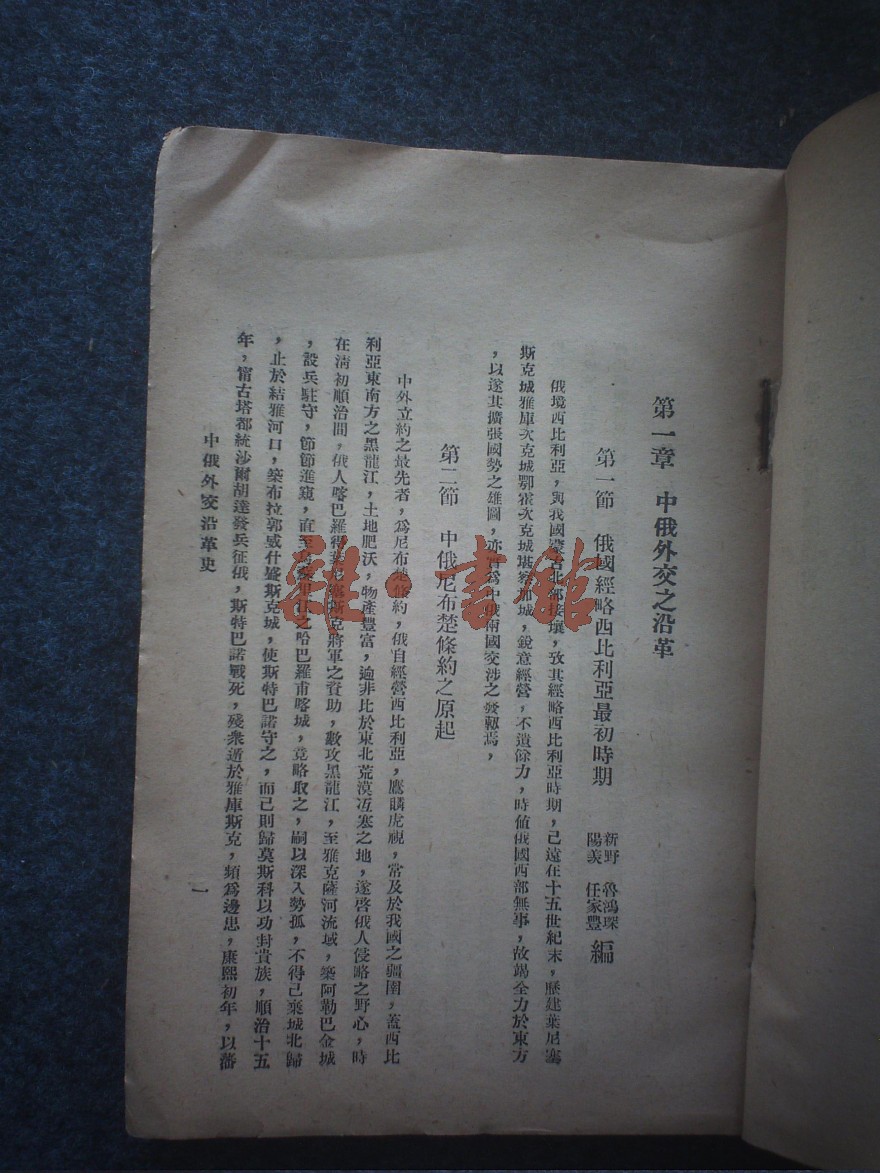 第一章 中俄外交之沿革
第一節 俄國經略西比利亞最初時期
新野 魯鴻琛
陽羨 任家豐 編
俄境西比利亞，與我國蒙古北部接壤，致其經略西比利亞時期，已遠在十五世紀末，歷建葉尼塞
斯克城雅庫次克城鄂霍次克城堪察加城，銳意經營，不遺餘力，時值俄國西部無事，故竭全力於東方
，以遂其擴張國勢之雄圖，亦實為中俄兩國交涉之發軔焉，
第二節 中俄尼布楚條約之原起
中外立約之最先者，為尼布楚條約，俄自經營西比利亞，鷹瞵虎視，常及於我國之疆圉，蓋西比
利亞東南方之黑龍江，土地肥沃，物產豐富，逈非比於東北荒漠冱寒之地，遂啓俄人侵略之野心，時
在淸初順治間，俄人喀巴羅得葉尼塞斯克將軍之資助，數攻黑龍江，至雅克薩河流域，築阿勒巴金城
，設兵駐守，節節進窺，直至烏蘇里江之哈巴羅甫喀城，竟略取之，嗣以深入勢孤，不得已棄城北歸
，止於結雅河口，築布拉郭威什盛斯克城，使斯特巴諾守之，而已則歸莫斯科以功封貴族，順治十五
年，甯古塔都統沙爾胡達發兵征俄，斯特巴諾戰死，殘衆遁於雅庫斯克，頻為邊患，康熙初年，以藩
中俄外交沿革史
一
雜·書館